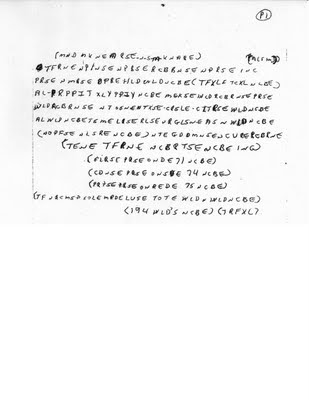 P1
(MND MKNEARSE-N-S-M-KNARE) (ACSM)
TFRNE NPINSE NPBSERCBBNSE NPRSE INC
PRSE NMRSE OPREHLDWLDNCBE (TFXLF TCXL NCBE)
AL-PRPPIT XLY PPIY NCBE MGKSE WLDRCBRNSE PRSE
WLDRCBRNSE NTSSNENTXSE-CRSLE-CITRSE WLDNCBE
ALWLPNCBETSME LRSERLSEURGLSNEASN WLDNCBE
(NOPFSE NLSRE NCBE) NTEGDDMNSENCURERCBRNE
(TENE TFRNE NCBRTSE NCBE INC)
(FLRSE PRSEONDE 71 NCBE)
(CDNSE PRSEONSDE 74 NCBE)
(PRTSE PRSEONREDE 75 NCBE)
(TFNRCMSP SOLE MRDE LUSE TOTE WLDN WLDNCBE)
(194 WLD'S NCBE) (TRFXL)